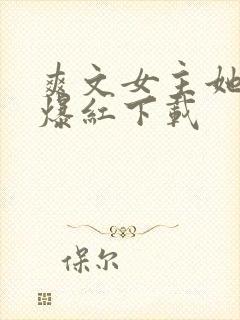 爽文女主她
爆红下载
保尔